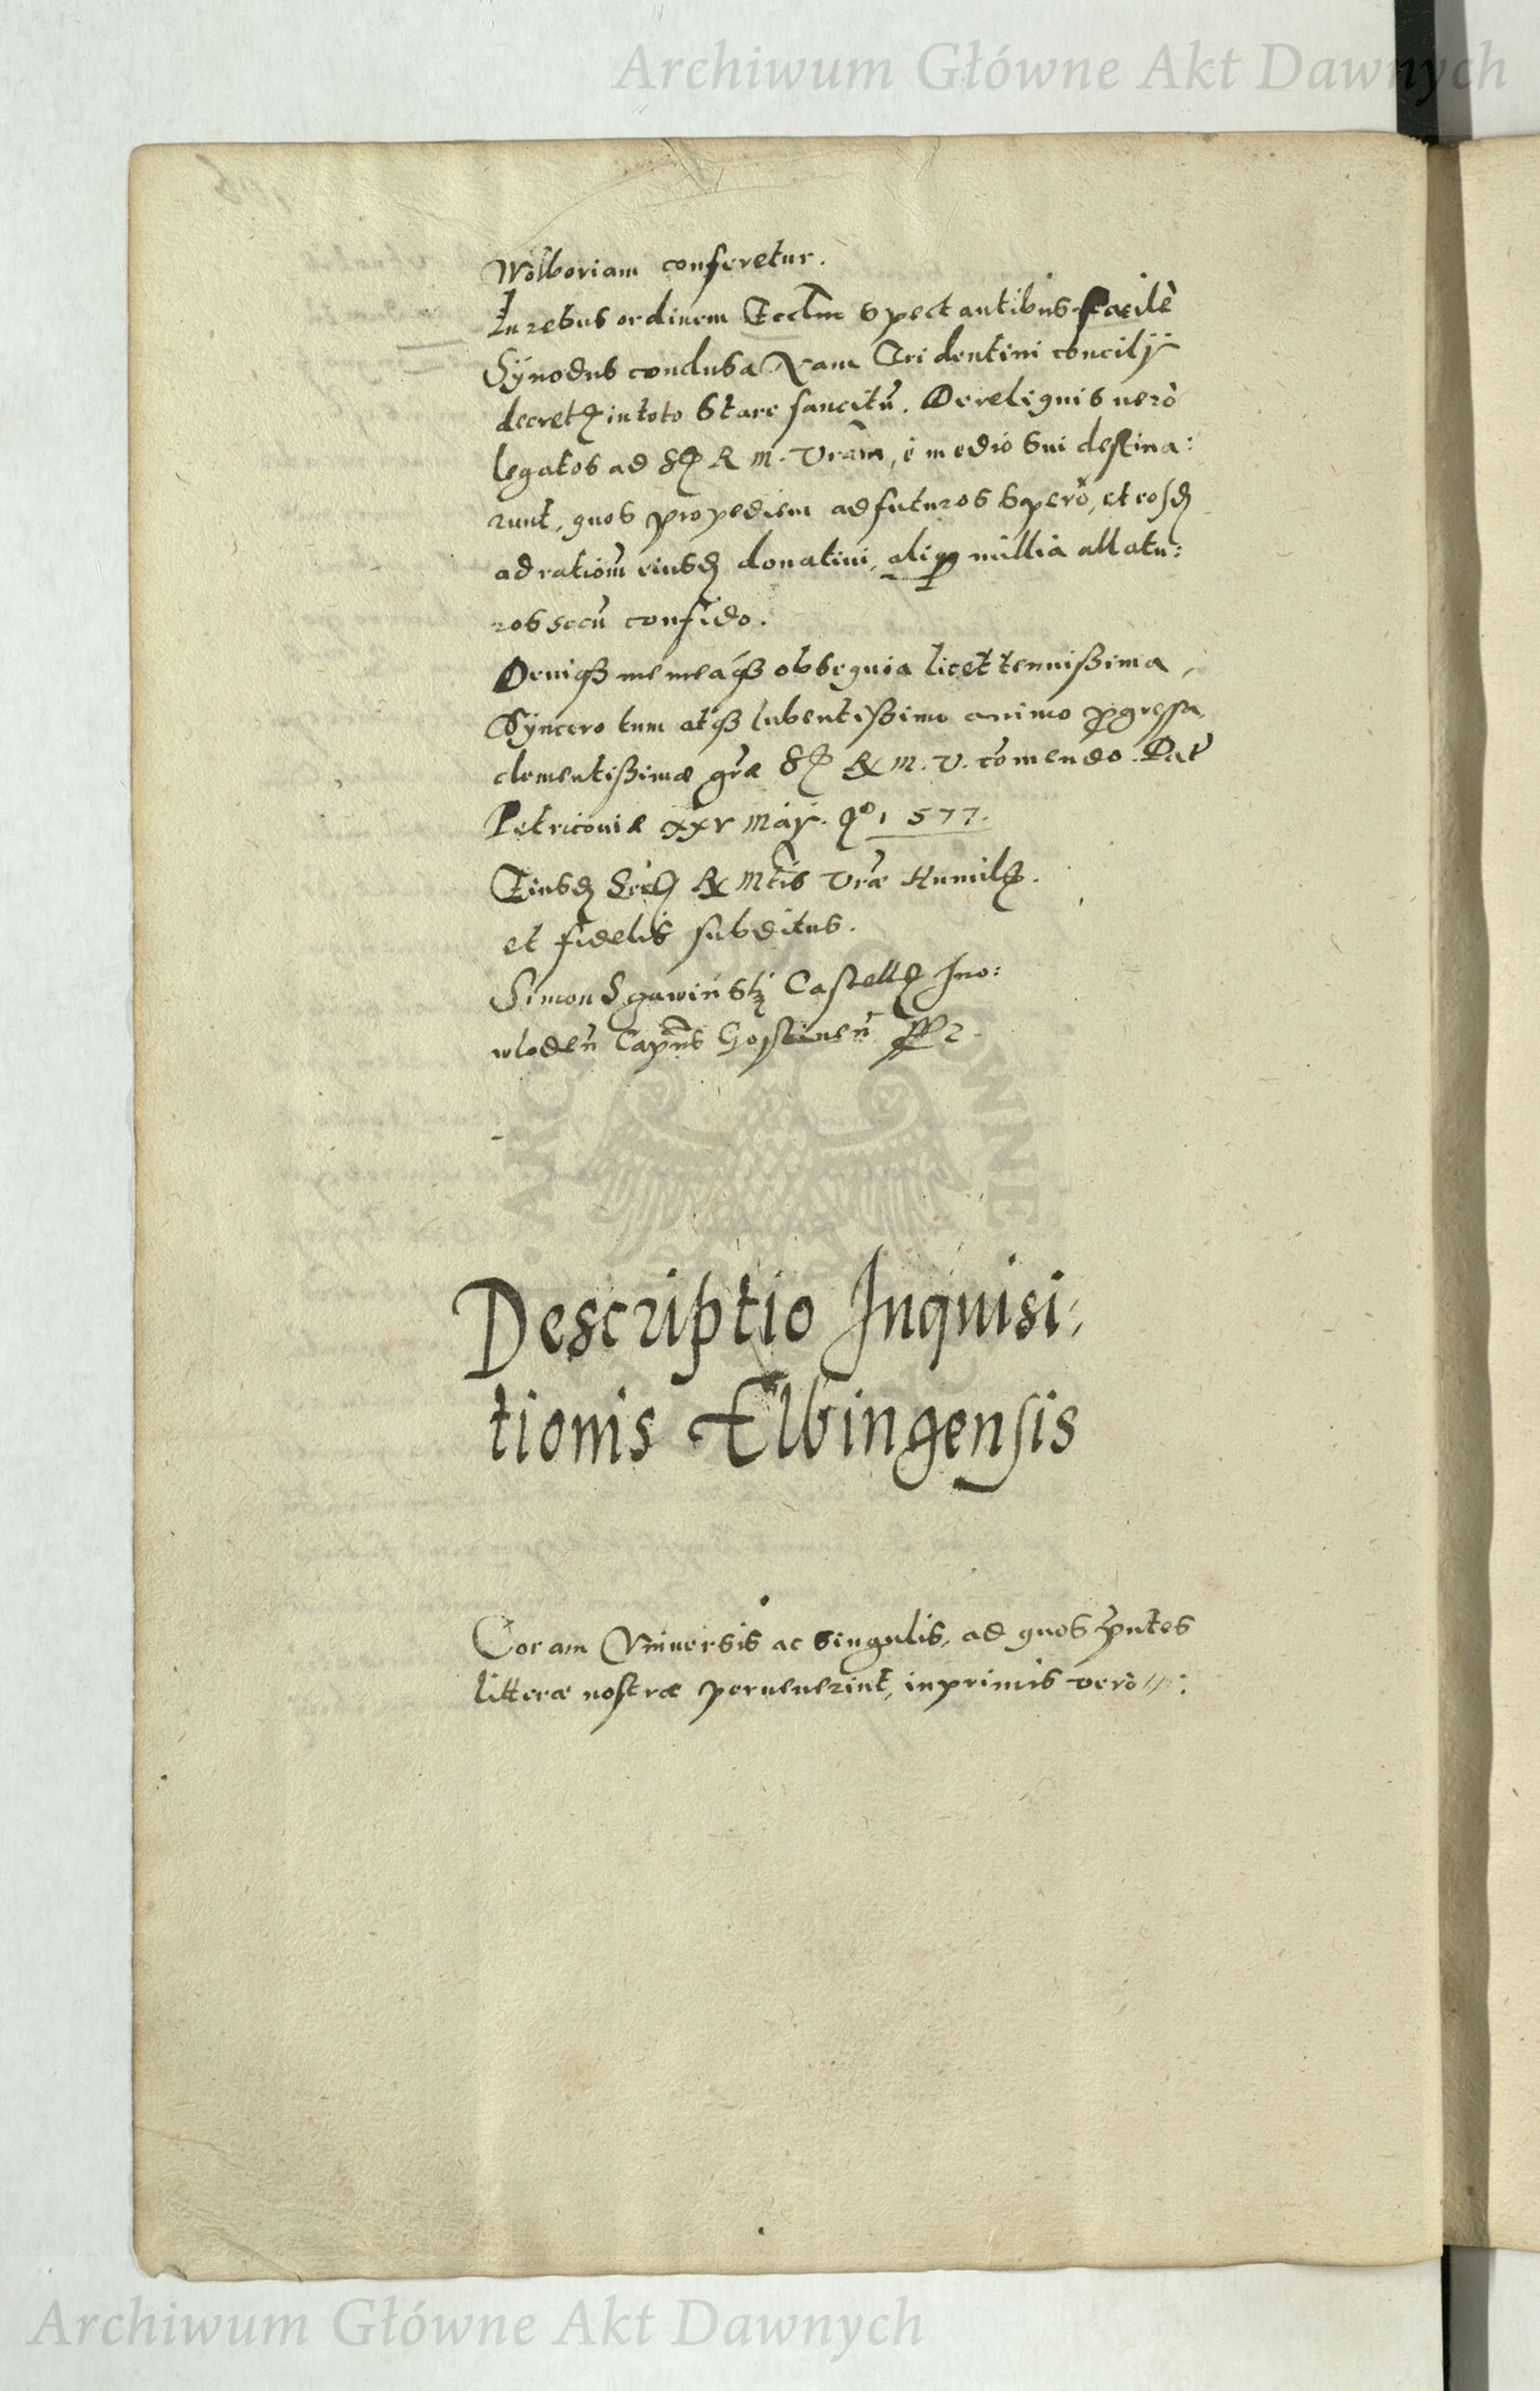 Archiwum Główne Akt Dawnych
Wolboriam conferetur.
In rebus ordinem Ecclm spectantibus facilè
Sÿnodus conclusa nam Tridentini concilÿ
decret in toto stare sancitū. De reliquis uerò
legatos ad S R M. Vram, è medio sui destina:
runt, quos propediem adfuturos sperò, et eosd
ad rationem eiusd donatiui, aliq millia allatu:
ros secū confido.
Deniq me meaq obsequia licet tenuißima,
Syncero tum atq lubentißimo animo progressa,
clementißimæ grae S R M. V. comendo. Dat
Petricouiæ xxv Maÿ. Ao 1577.
Eiusd R Mtis Vrae Humil.
et fidelis subditus.
Simon Sgawinsk Castell Ino:
wloden Capns Gostinen
Descriptio Inquisi:
tionis Elbingensis
Coram Vniuersis ac singulis, ad quos pntes
litteræ nostræ peruenerint, inprimis verò
Archiwum Główne Akt Dawnych